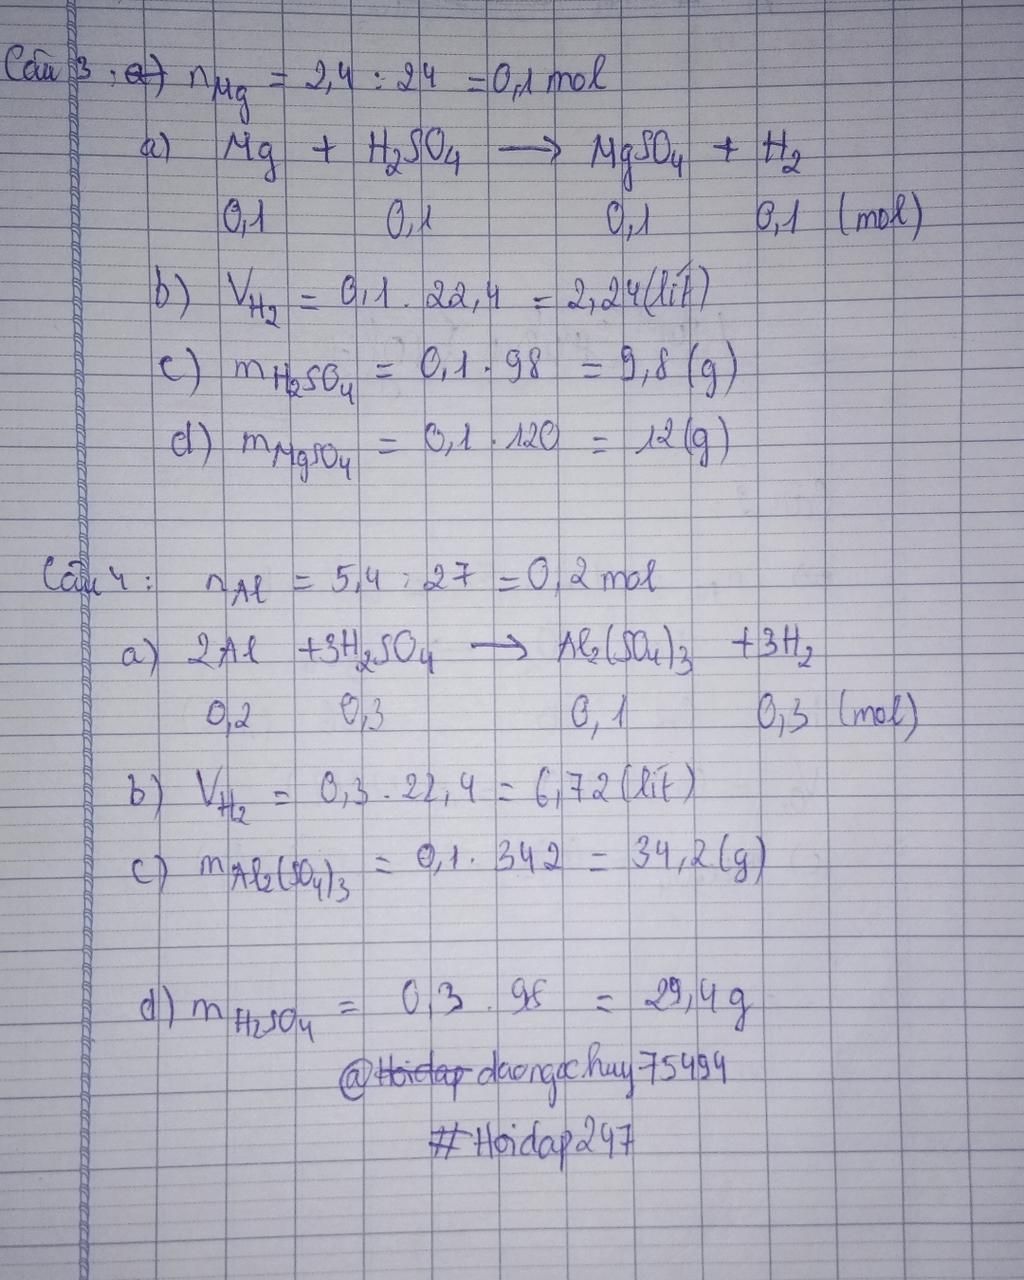 Câu 3 : a) nMg = 2,4 : 24 = 0,1 mol
a) Mg + H2SO4 → MgSO4 + H2
0,1 0,1 0,1 0,1 (mol)
b) VH2 = 0,1 . 22,4 = 2,24 (lít)
c) mH2SO4 = 0,1 . 98 = 9,8 (g)
d) mMgSO4 = 0,1 . 120 = 12 (g)
Câu 4 : nAl = 5,4 : 27 = 0,2 mol
a) 2Al +3H2SO4 → Al2(SO4)3 +3H2
0,2 0,3 0,1 0,3 (mol)
b) VH2 = 0,3 . 22,4 = 6,72 (lít)
c) mAl2(SO4)3 = 0,1 . 342 = 34,2 (g)
d) mH2SO4 = 0,3 . 98 = 29,4 g
@Hoidap daongochuy75494
#Hoidap247